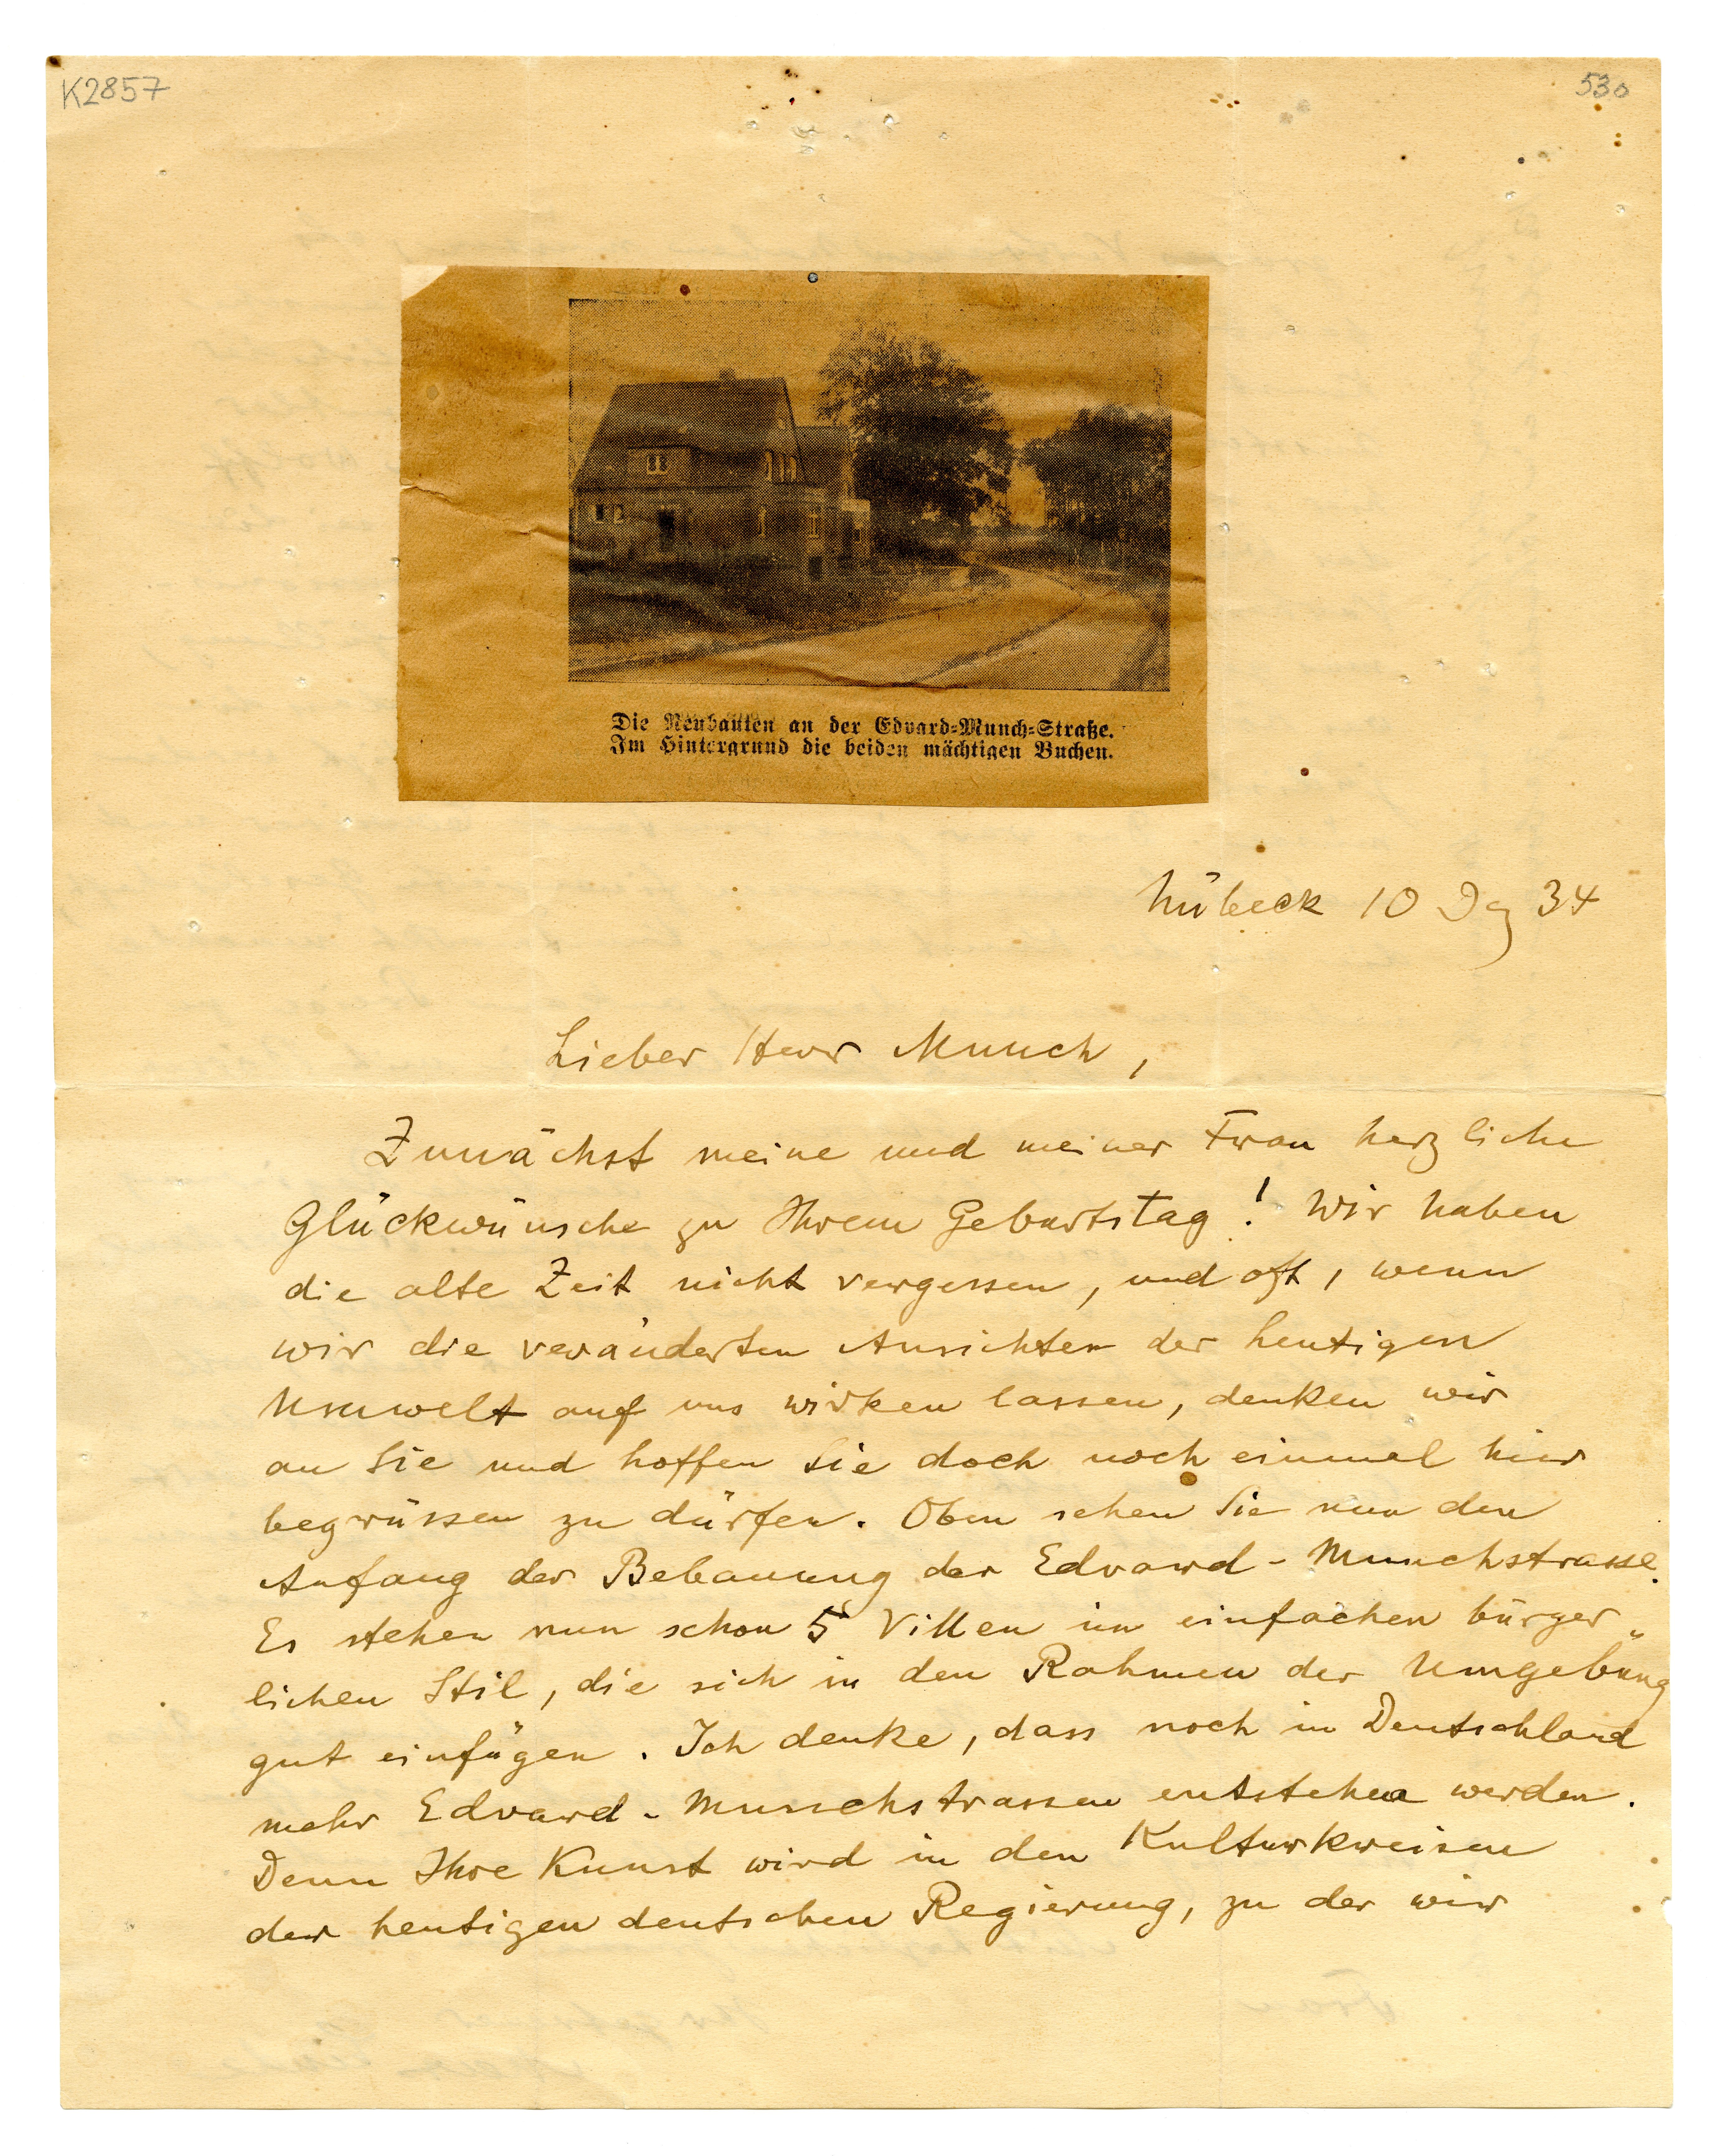 K2857
530
Die Neubauten an der Edvard-Munch-Straße.
Im Hintergrund die beiden mächtigen Buchen.
Lübeck 10 Dz 34
Lieber Herr Munch,
Zunächst meine und meiner Frau herzliche
Glückwünsche zu Ihrem Geburtstag! Wir haben
die alte Zeit nicht vergessen, und oft, wenn
wir die veränderten Ansichten der heutigen
Umwelt auf uns wirken lassen, denken wir
an Sie und hoffen Sie doch noch einmal hier
begrüssen zu dürfen. Oben sehen Sie nun den
Anfang der Bebauung der Edvard-Munchstrasse.
Es stehen nun schon 5 Villen im einfachen bürger„
lichen Stil, die sich in den Rahmen der Umgebung
gut einfügen. Ich denke, dass noch in Deutschland
mehr Edvard-Munchstrassen entstehen werden.
Denn Ihre Kunst wird in den Kulturkreisen
der heutigen deutschen Regierung, zu der wir